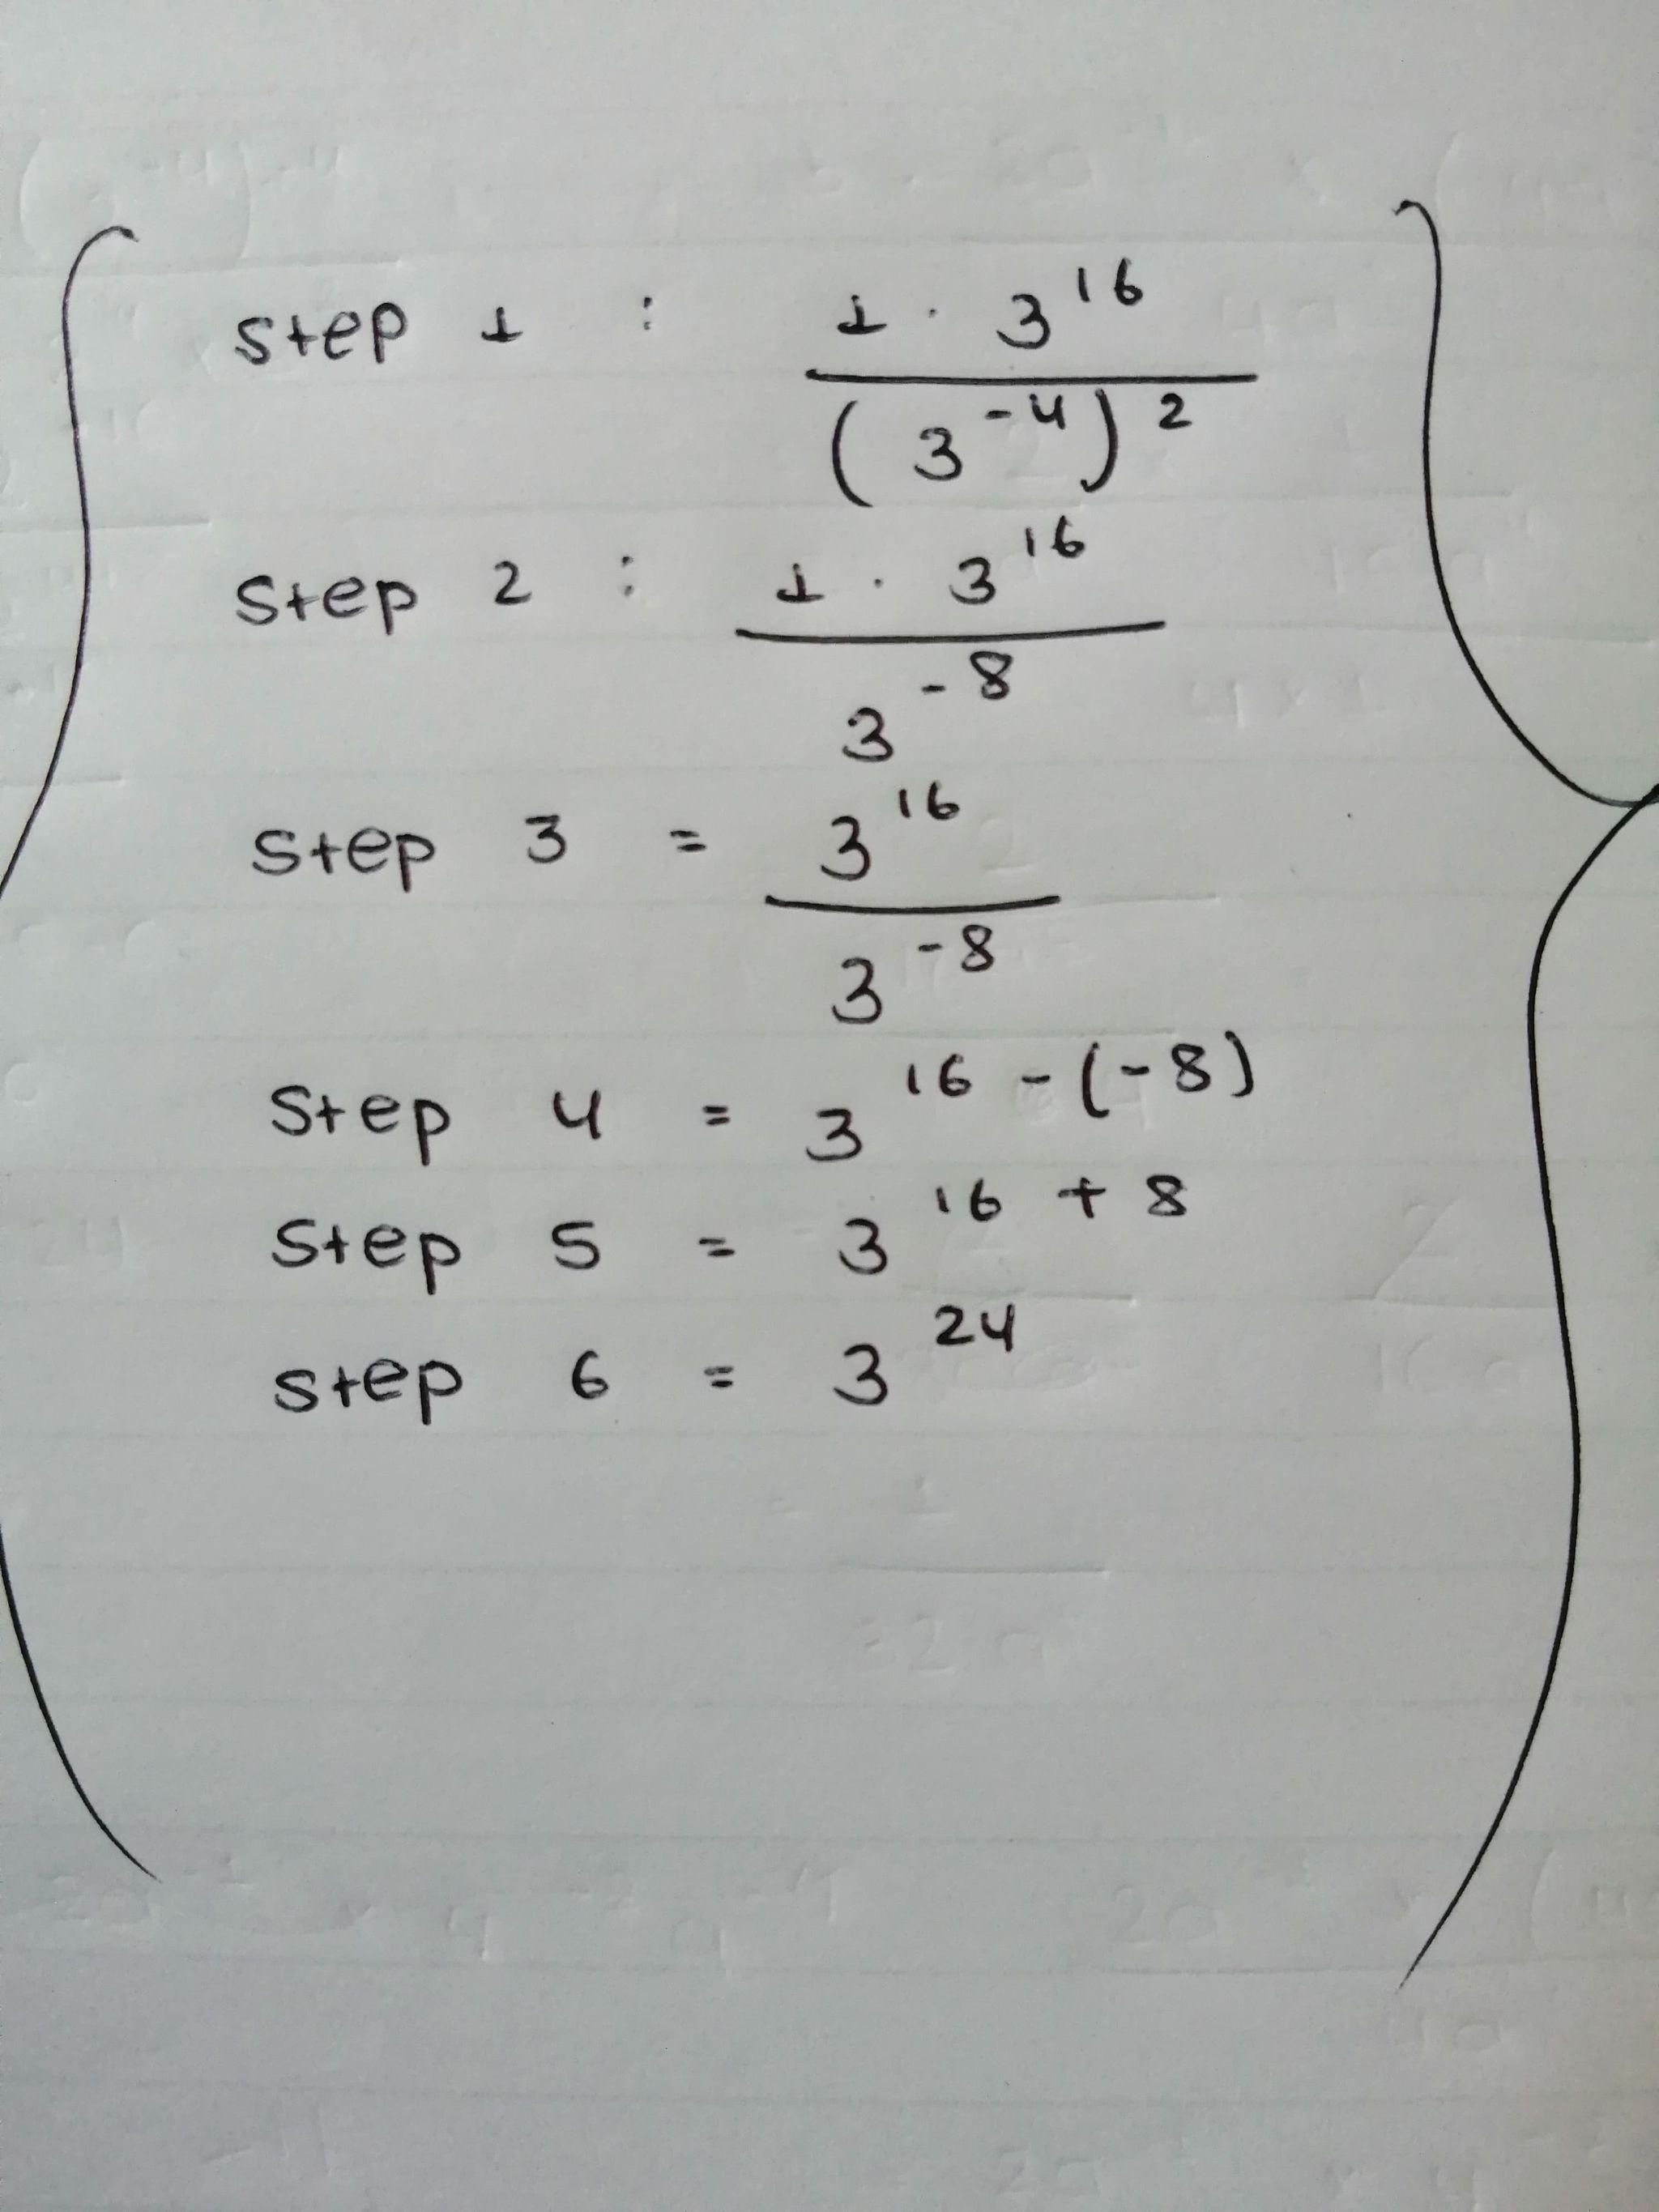 step 1 : 1 · 3^16
(3^-4)^2
step 2 : 1 · 3^16
3^-8
step 3 = 3^16
3^-8
step 4 = 3^16 - (-8)
step 5 = 3^16 + 8
step 6 = 3^24